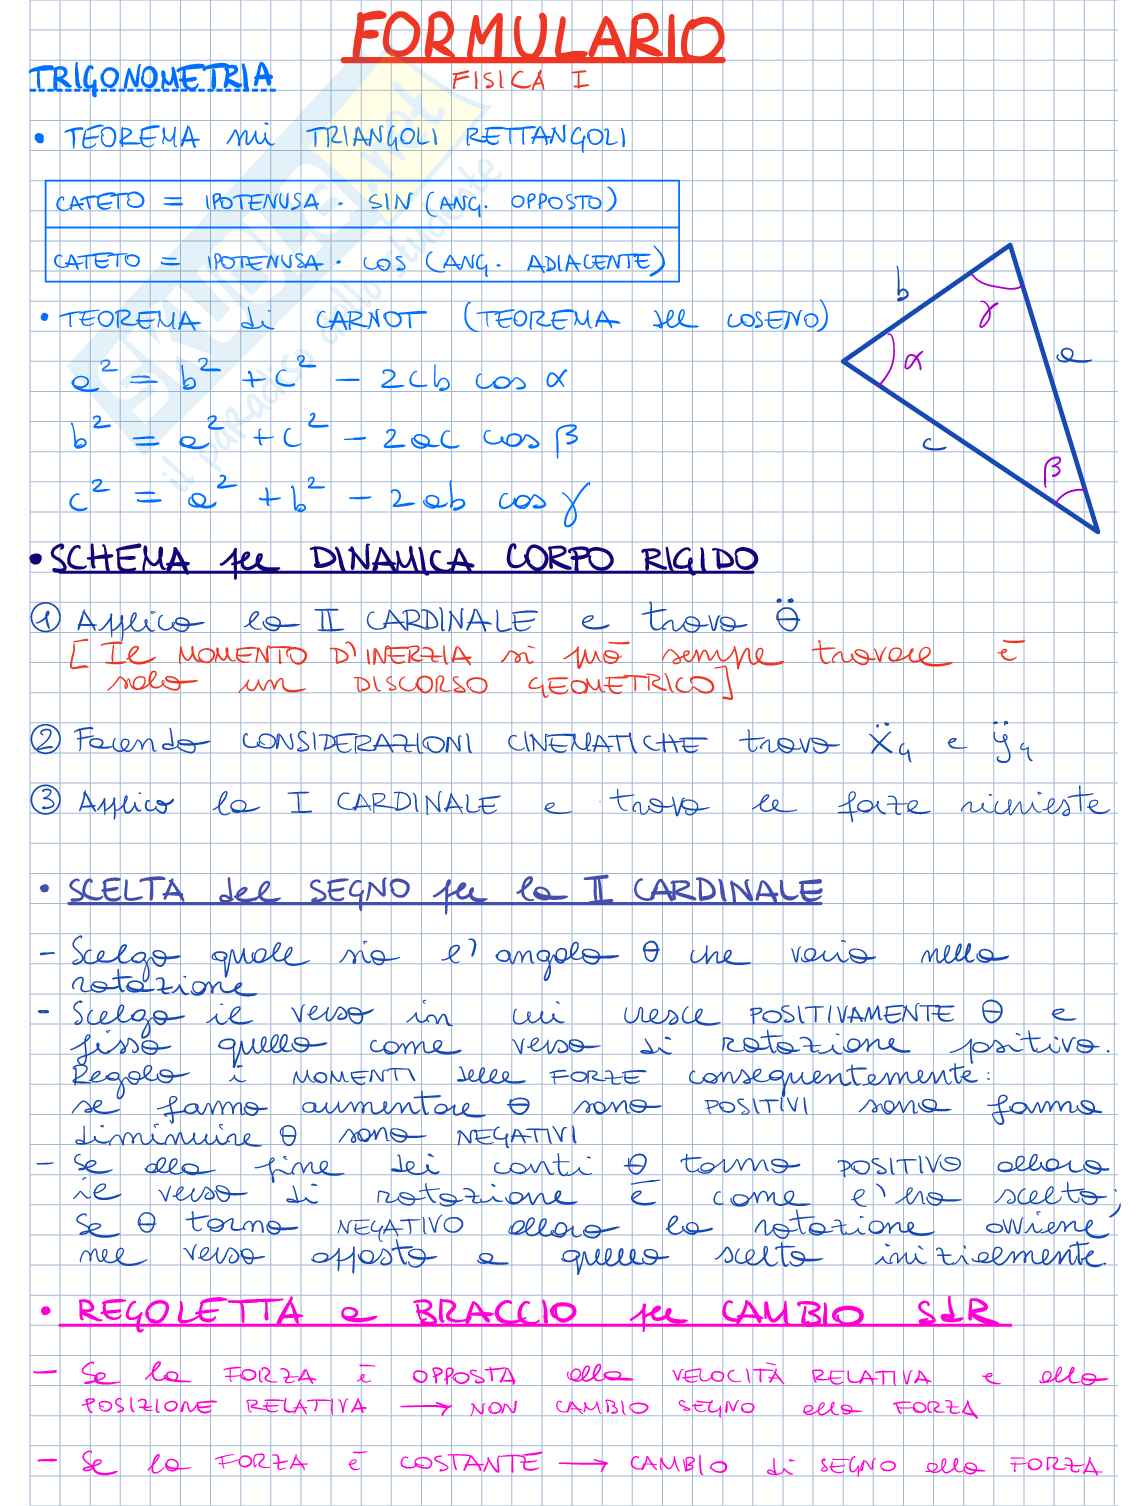 FORMULARIO
FISICA I
TRIGONOMETRIA
• TEOREMA sui TRIANGOLI RETTANGOLI
CATETO = IPOTENUSA · SIN (ANG. OPPOSTO)
CATETO = IPOTENUSA · COS (ANG. ADIACENTE)
• TEOREMA di CARNOT (TEOREMA del COSENO)
a² = b² + c² - 2cb cos α
b² = a² + c² - 2ac cos β
c² = a² + b² - 2ab cos γ
b
γ
α
a
c
β
SKUOLA.net
il paradiso dello studente
• SCHEMA per DINAMICA CORPO RIGIDO
① Applico la II CARDINALE e trovo θ̈
[Il MOMENTO D'INERZIA si può sempre trovare è
solo un DISCORSO GEOMETRICO]
② Facendo CONSIDERAZIONI CINEMATICHE trovo ẍ_G e ÿ_G
③ Applico la I CARDINALE e trovo le forze richieste
• SCELTA del SEGNO per la II CARDINALE
- Scelgo quale sia l'angolo θ che varia nella
rotazione
- Scelgo il verso in cui cresce POSITIVAMENTE θ e
fisso quello come verso di rotazione positivo.
Regolo i MOMENTI delle FORZE conseguentemente:
se fanno aumentare θ sono POSITIVI sono fanno
diminuire θ sono NEGATIVI
- Se alla fine dei conti θ torna POSITIVO allora
il verso di rotazione è come l'ho scelto;
Se θ torna NEGATIVO allora la rotazione avviene
nel verso opposto a quello scelto inizialmente.
• REGOLETTA a BRACCIO per CAMBIO SdR
- Se la FORZA è OPPOSTA alla VELOCITÀ RELATIVA e alla
POSIZIONE RELATIVA → NON CAMBIO SEGNO alla FORZA
- Se la FORZA è COSTANTE → CAMBIO di SEGNO alla FORZA